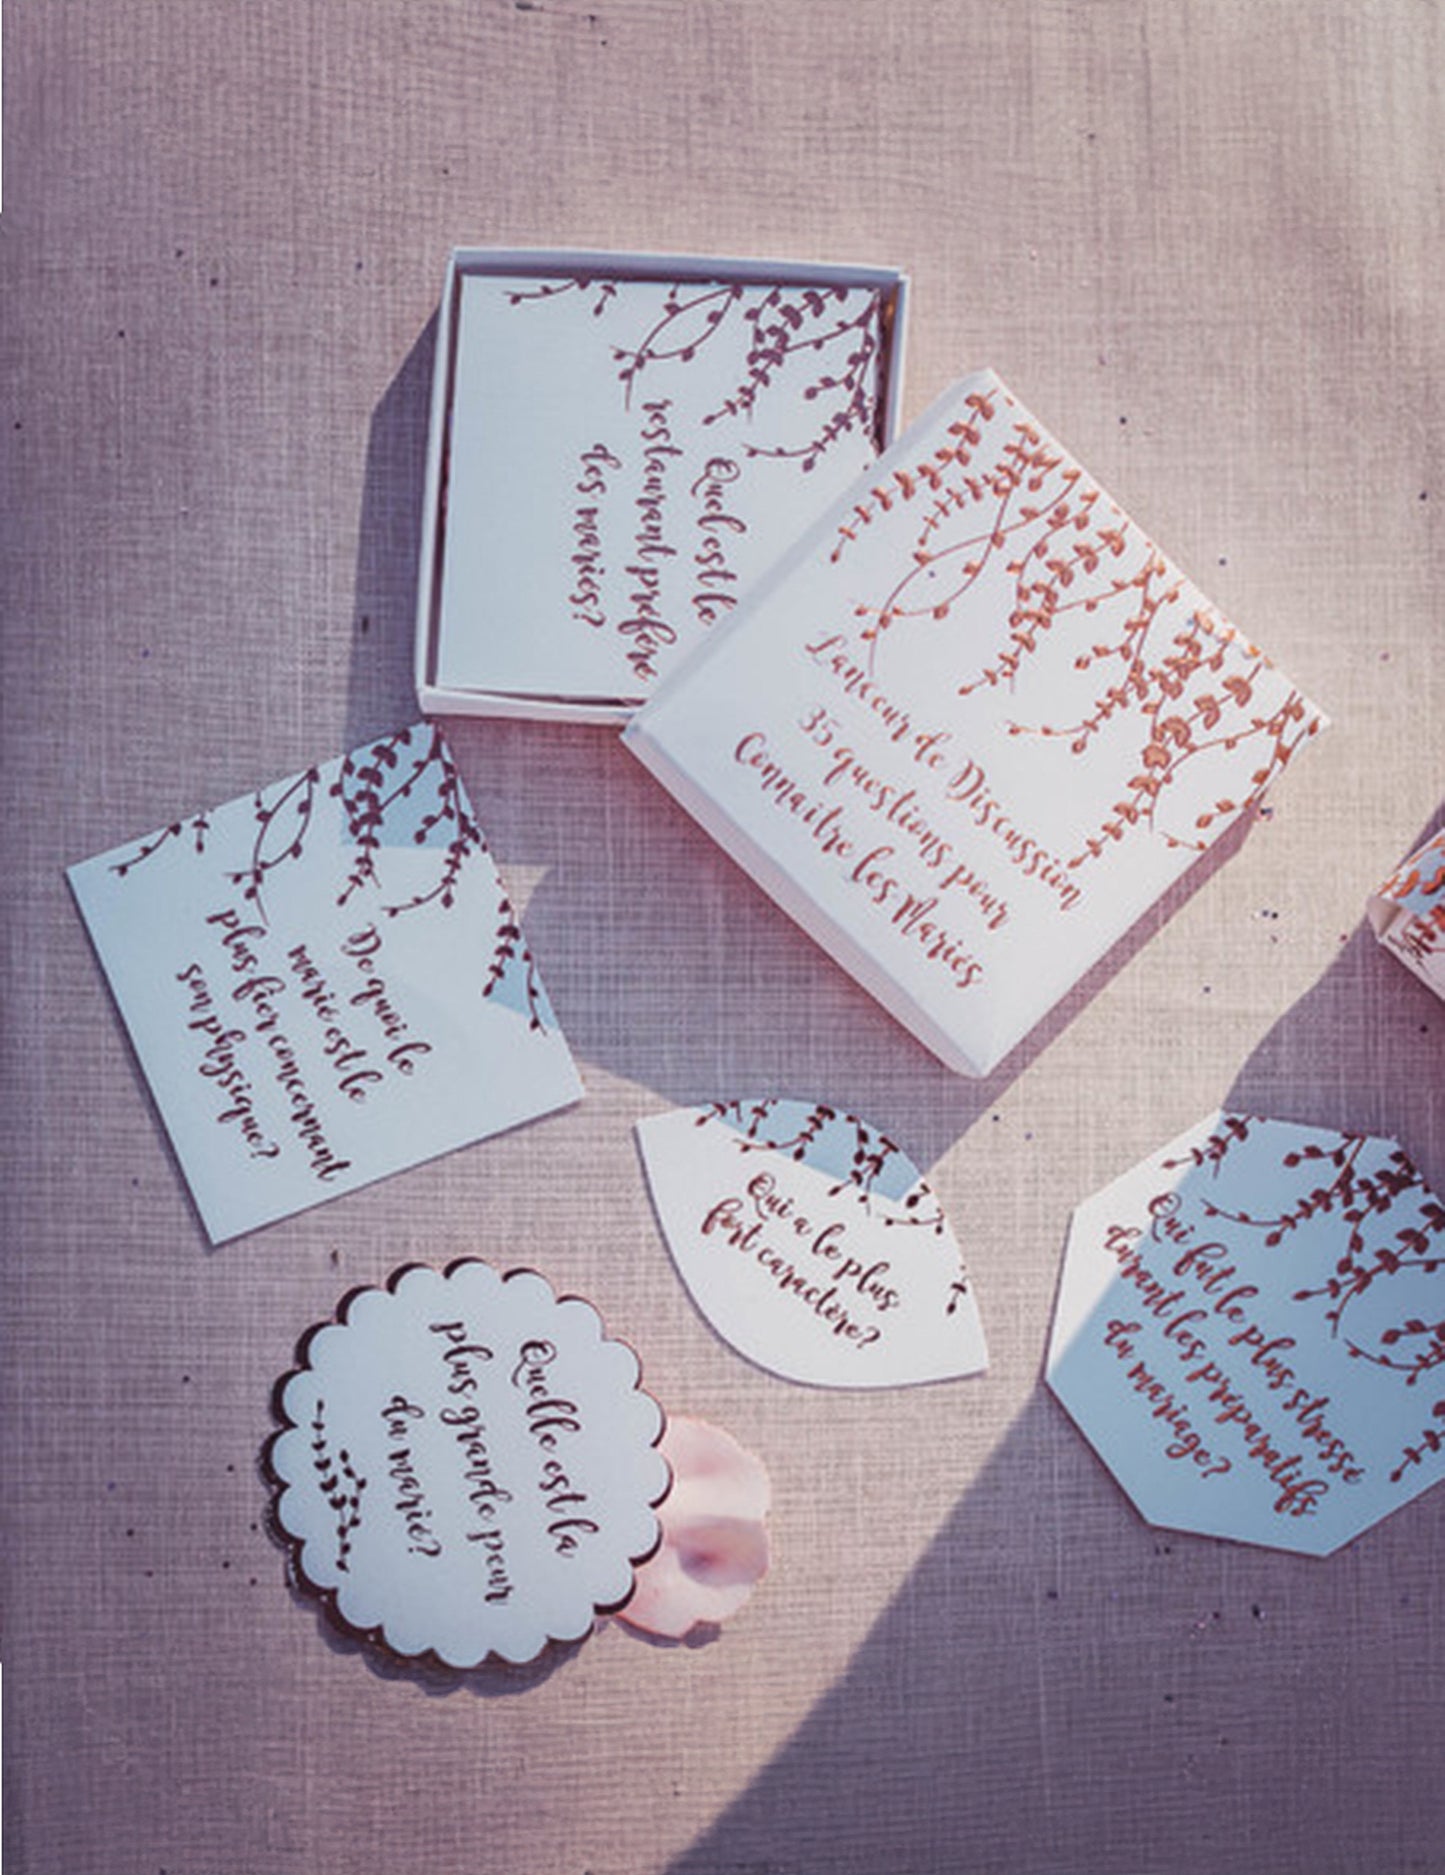 Quel est le
restaurant préféré
des mariés?
Lanceur de Discussion
35 questions pour
Connaitre les Mariés
De quoi le
marié est le
plus fier concernant
son physique?
Qui a le plus
fort caractère?
Qui fut le plus stressé
durant les préparatifs
du mariage?
Quelle est la
plus grande peur
du marié?